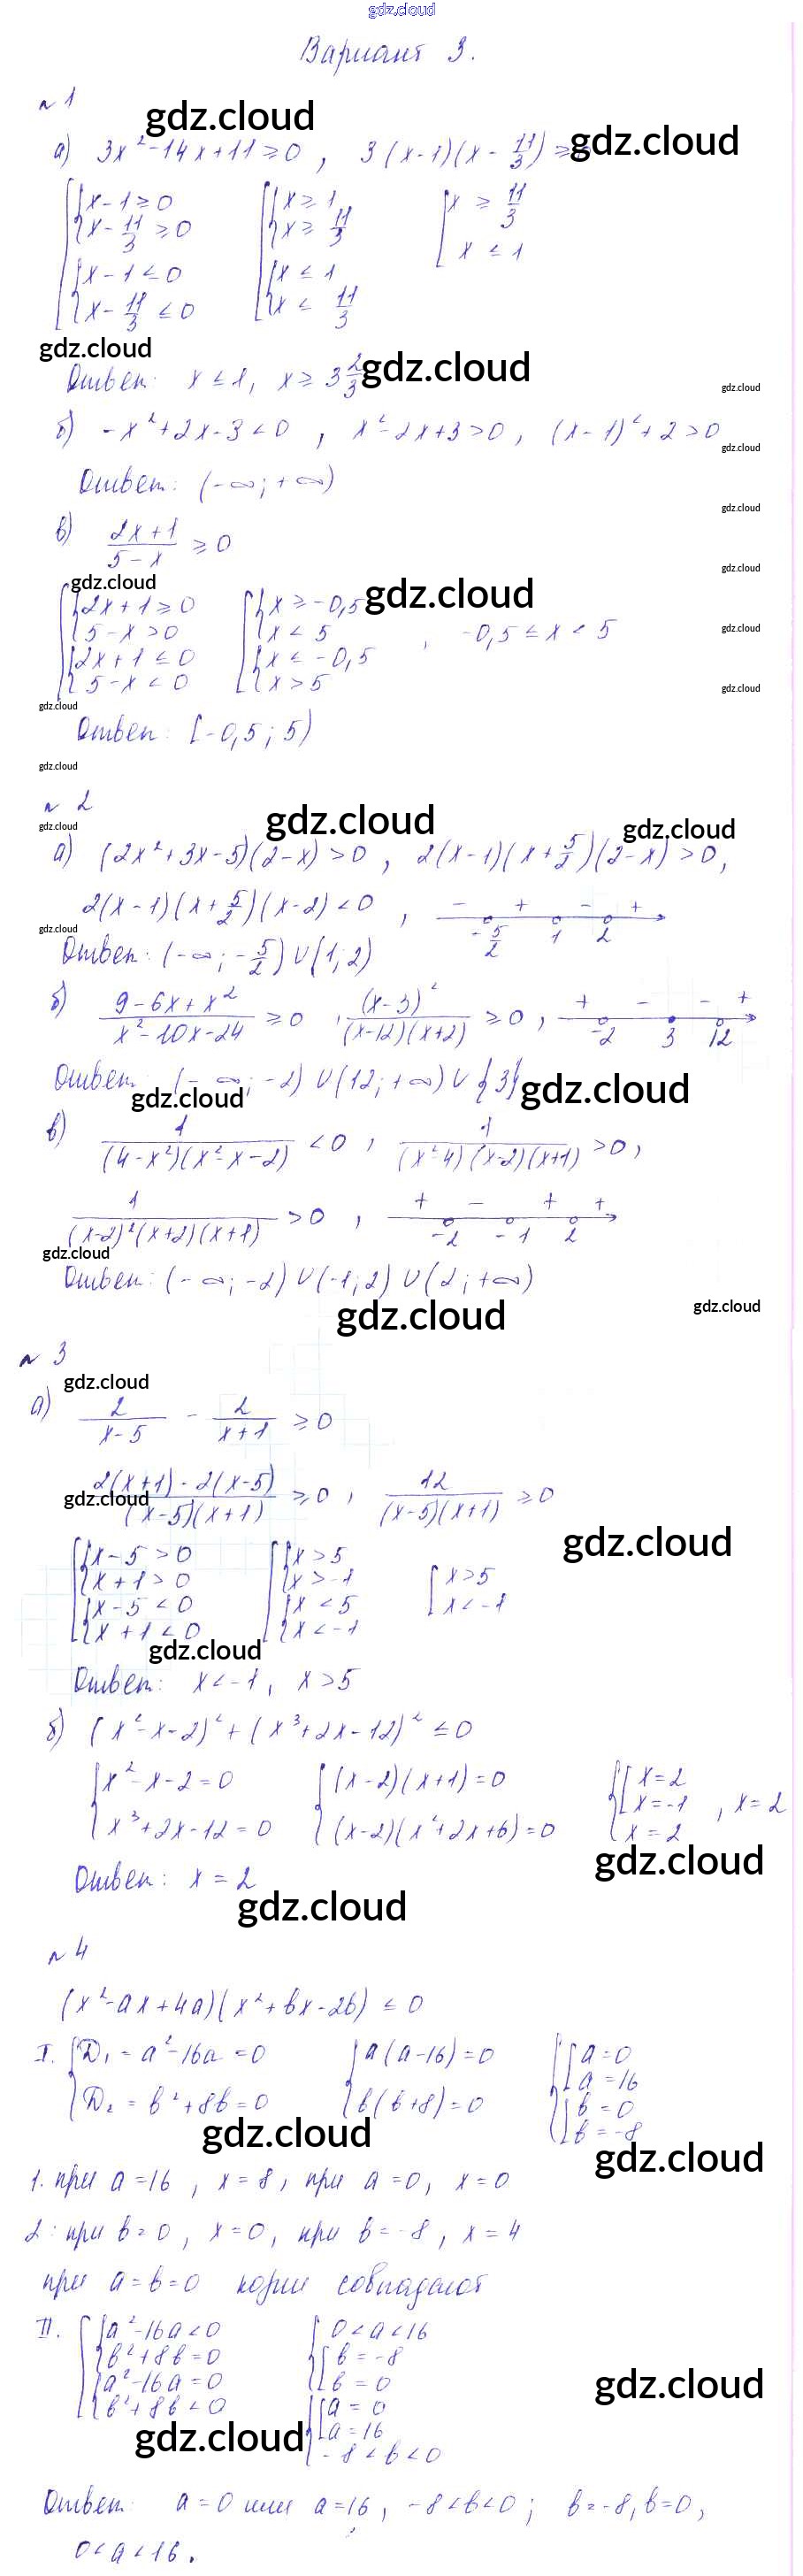 gdz.cloud
Вариант 3.
№ 1
gdz.cloud
а) 3x² - 14x + 11 ≥ 0 , 3 (x - 1)(x - 11/3) ≥
gdz.cloud
x - 1 ≥ 0 x ≥ 1 x ≥ 11/3
x - 11/3 ≥ 0 x ≥ 11/3 x ≤ 1
x - 1 ≤ 0 x ≤ 1
x - 11/3 ≤ 0 x ≤ 11/3
gdz.cloud
gdz.cloud
Ответ: x ≤ 1, x ≥ 3 2/3
gdz.cloud
б) -x² + 2x - 3 < 0 , x² - 2x + 3 > 0 , (x - 1)² + 2 > 0
gdz.cloud
Ответ: (-∞; +∞)
gdz.cloud
в) (2x + 1)/(5 - x) ≥ 0
gdz.cloud
gdz.cloud
gdz.cloud
2x + 1 ≥ 0 x ≥ -0,5
5 - x > 0 x < 5 , -0,5 ≤ x < 5
gdz.cloud
2x + 1 ≤ 0 x ≤ -0,5
5 - x < 0 x > 5
gdz.cloud
gdz.cloud
Ответ: [-0,5; 5)
gdz.cloud
№ 2
gdz.cloud
gdz.cloud
gdz.cloud
а) (2x² + 3x - 5)(2 - x) > 0 , 2(x - 1)(x + 5/2)(2 - x) > 0,
2(x - 1)(x + 5/2)(x - 2) < 0 , - + - +
-5/2 1 2
gdz.cloud
Ответ: (-∞; -5/2) ∪ (1; 2)
б) (9 - 6x + x²)/(x² - 10x - 24) ≥ 0 , (x - 3)²/((x - 12)(x + 2)) ≥ 0 , + - - +
-2 3 12
Ответ: (-∞; -2) ∪ (12; +∞) ∪ {3}
gdz.cloud
gdz.cloud
в) 1/((4 - x²)(x² - x - 2)) < 0 , 1/((x² - 4)(x - 2)(x + 1)) > 0 ,
1/((x - 2)²(x + 2)(x + 1)) > 0 , + - + +
-2 -1 2
gdz.cloud
Ответ: (-∞; -2) ∪ (-1; 2) ∪ (2; +∞)
gdz.cloud
gdz.cloud
№ 3
gdz.cloud
а) 2/(x - 5) - 2/(x + 1) ≥ 0
(2(x + 1) - 2(x - 5))/((x - 5)(x + 1)) ≥ 0 , 12/((x - 5)(x + 1)) ≥ 0
gdz.cloud
gdz.cloud
x - 5 > 0 x > 5 x > 5
x + 1 > 0 x > -1 x < -1
x - 5 < 0 x < 5
x + 1 < 0 x < -1
gdz.cloud
Ответ: x < -1, x > 5
б) (x² - x - 2)² + (x³ + 2x - 12)² ≤ 0
x² - x - 2 = 0 (x - 2)(x + 1) = 0 x = 2
x = -1 , x = 2
x³ + 2x - 12 = 0 (x - 2)(x² + 2x + 6) = 0 x = 2
gdz.cloud
Ответ: x = 2
gdz.cloud
№ 4
(x² - ax + 4a)(x² + bx - 2b) ≤ 0
I. D₁ = a² - 16a = 0 a(a - 16) = 0 a = 0
a = 16
D₂ = b² + 8b = 0 b(b + 8) = 0 b = 0
b = -8
gdz.cloud
gdz.cloud
1. при a = 16 , x = 8 , при a = 0, x = 0
2. при b = 0 , x = 0, при b = -8 , x = 4
при a = b = 0 корни совпадают
II. a² - 16a < 0 0 < a < 16
b² + 8b = 0 b = -8
a² - 16a = 0 b = 0
b² + 8b < 0 a = 0
a = 16
-8 < b < 0
gdz.cloud
gdz.cloud
Ответ: a = 0 или a = 16, -8 < b < 0 ; b = -8, b = 0,
0 < a < 16.